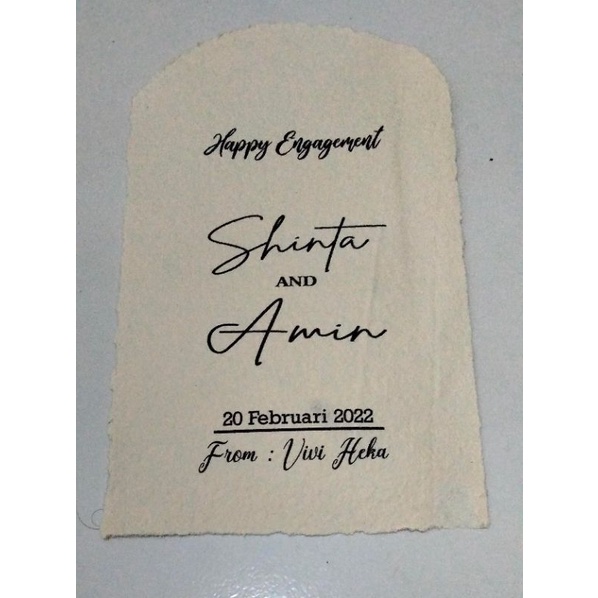 Happy Engagement
Shinta
AND
Amin
20 Februari 2022
From : Vivi Heka